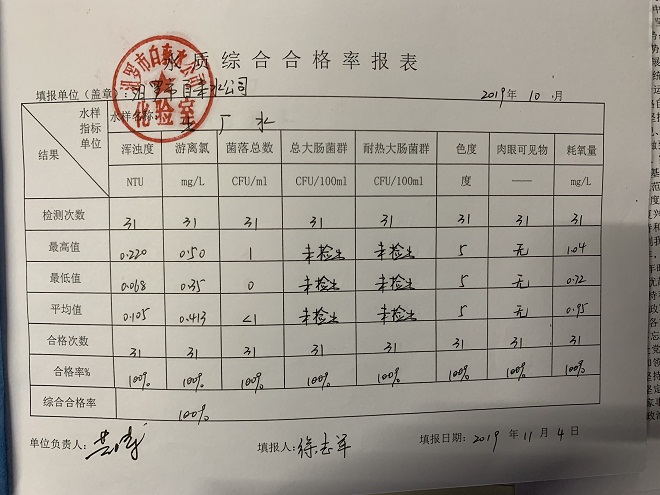 水质综合合格率报表
填报单位(盖章):汨罗市自来水公司 2019年10月
汨罗市自来水公司
化验室
水样 水样名称: 出厂水
指标
单位
结果
浑浊度 游离氯 菌落总数 总大肠菌群 耐热大肠菌群 色度 肉眼可见物 耗氧量
NTU mg/L CFU/ml CFU/100ml CFU/100ml 度 —— mg/L
检测次数 31 31 31 31 31 31 31 31
最高值 0.220 0.50 1 未检出 未检出 5 无 1.04
最低值 0.068 0.35 0 未检出 未检出 5 无 0.72
平均值 0.105 0.413 <1 未检出 未检出 5 无 0.95
合格次数 31 31 31 31 31 31 31 31
合格率% 100% 100% 100% 100% 100% 100% 100% 100%
综合合格率 100%
单位负责人: 填报人:徐志军 填报日期:2019年11月4日